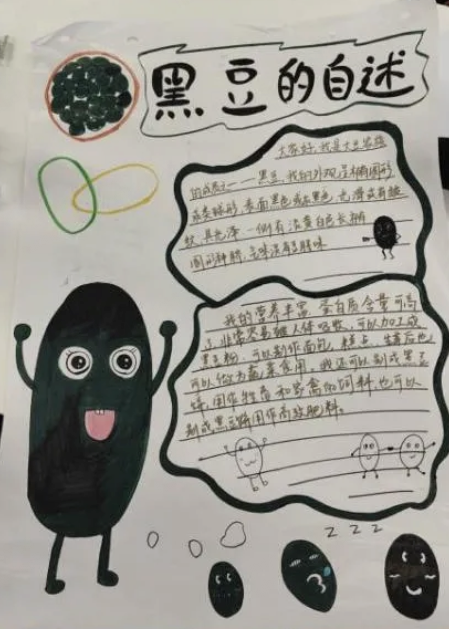 黑豆的自述
大家好,我是大豆家族
的成员之一——黑豆,我的外观呈椭圆形
或类球形,表面黑色或灰黑色,光滑或有皱
纹,具光泽,一侧有淡黄白色长椭
圆形种脐,气味淡有豆腥味
我的营养丰富,蛋白质含量可高
了,非常容易被人体吸收,可以加工成
黑豆粉,可以制作面包、糕点,
可以作为蔬菜食用。我还可以制成黑豆
饼,用作牲畜和家禽的饲料,也可以
制成黑豆饼用作高效肥料。
z z z